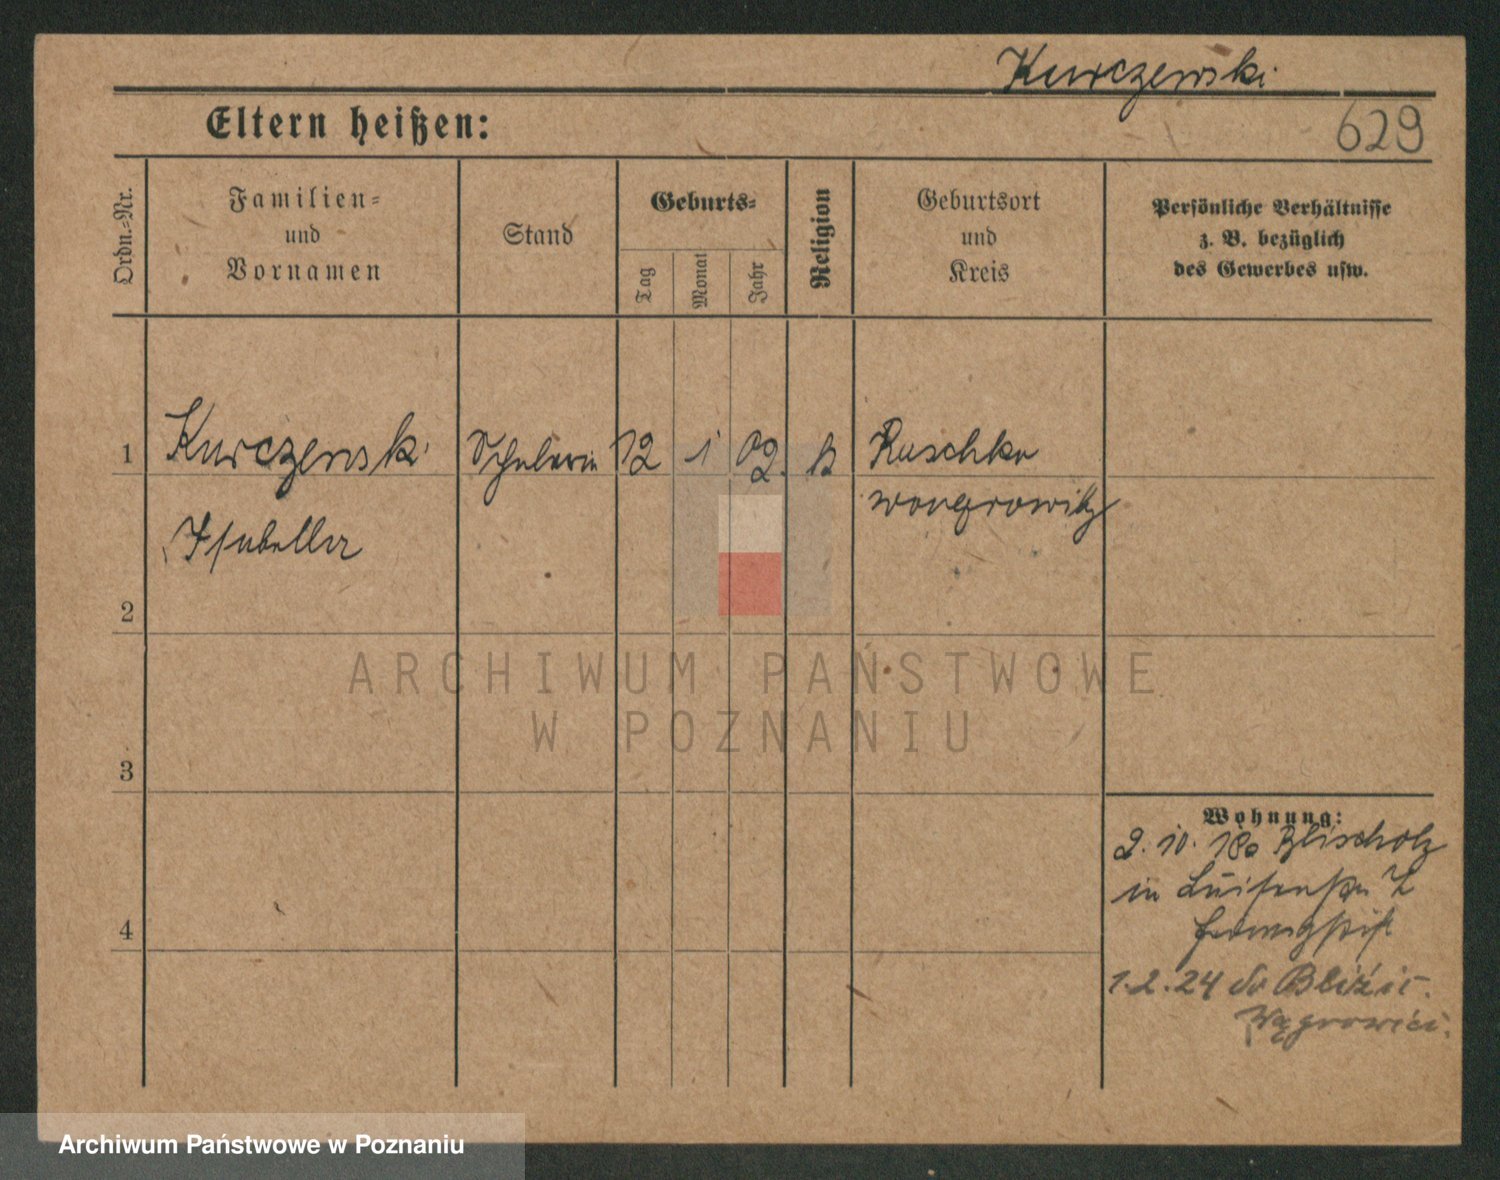 Kurczewski
Eltern heißen:
629
Ordn.-Nr.
Familien-
und
Vornamen
Stand
Geburts-
Tag
Monat
Jahr
Religion
Geburtsort
und
Kreis
Persönliche Verhältnisse
z. B. bezüglich
des Gewerbes usw.
1
Kurczewski Schülerin 12 1 02. Ruschkau
Wongrowitz
Isabella
2
ARCHIWUM PAŃSTWOWE
W POZNANIU
3
Wohnung:
2. 10. 18 Blischolz
in Luisenstr
4
1.2.24 do Bliżic.
Wągrowiec
Archiwum Państwowe w Poznaniu